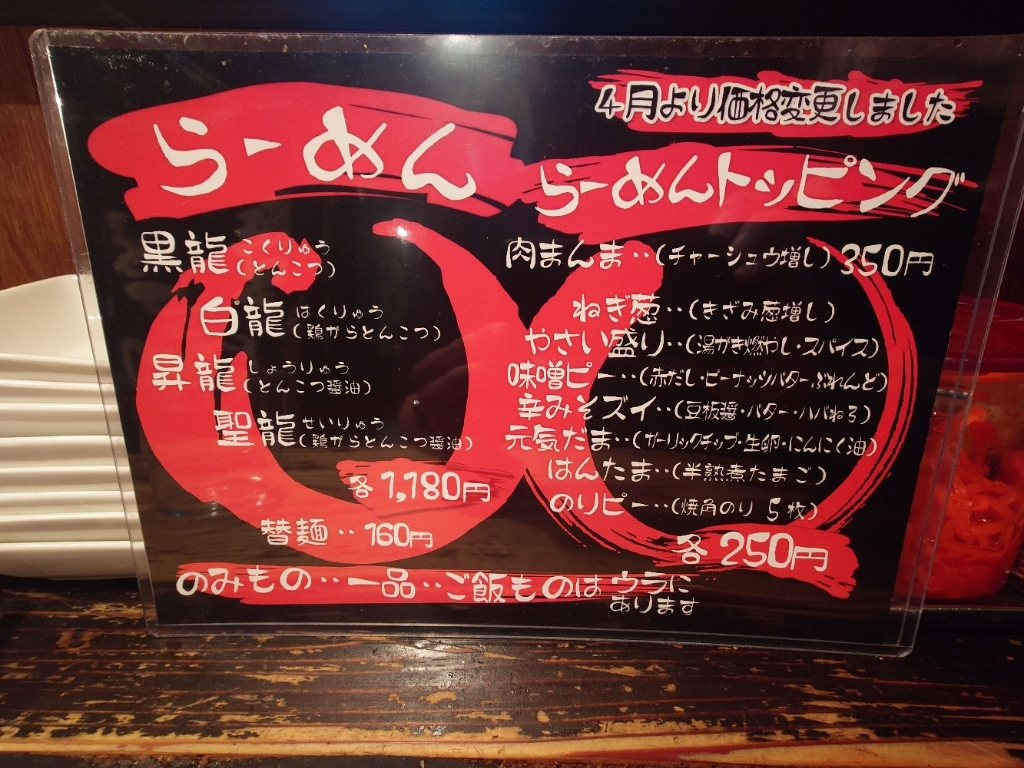 4月より価格変更しました
らーめん
黒龍 こくりゅう
(とんこつ)
白龍 はくりゅう
(鶏がらとんこつ)
昇龍 しょうりゅう
(とんこつ醤油)
聖龍 せいりゅう
(鶏がらとんこつ醤油)
各1,180円
替麺‥160円
らーめんトッピング
肉まんま‥(チャーシュウ増し) 350円
ねぎ葱‥(きざみ葱増し)
やさい盛り‥(湯がき燃やし・スパイス)
味噌ピー‥(赤だし・ピーナッツバターぶれんど)
辛みそズイ‥(豆板醤・バター・ハバねろ)
元気だま‥(ガーリックチップ・生卵・にんにく油)
はんたま‥(半熟煮たまご)
のりピー‥(焼角のり 5枚)
各250円
のみもの‥一品‥ご飯ものはウラに
あります